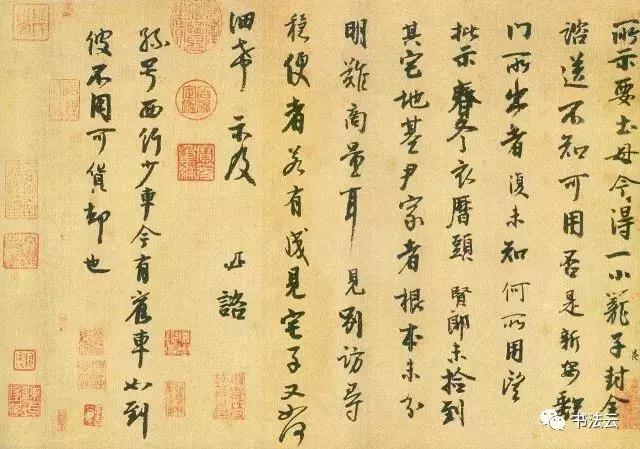 所示要土母今得一小籠子封全
諮送不知可用否是新安缺
門所出者復未知何所用望
批示春冬衣曆頭賢郎未撿到
其宅地基尹家者根本未分
明難商量耳見別訪尋
穩便者若有成見宅子又如何
細希示及
諮
孫号西行少車今有舊車如到
彼不用可貨却也
书法云